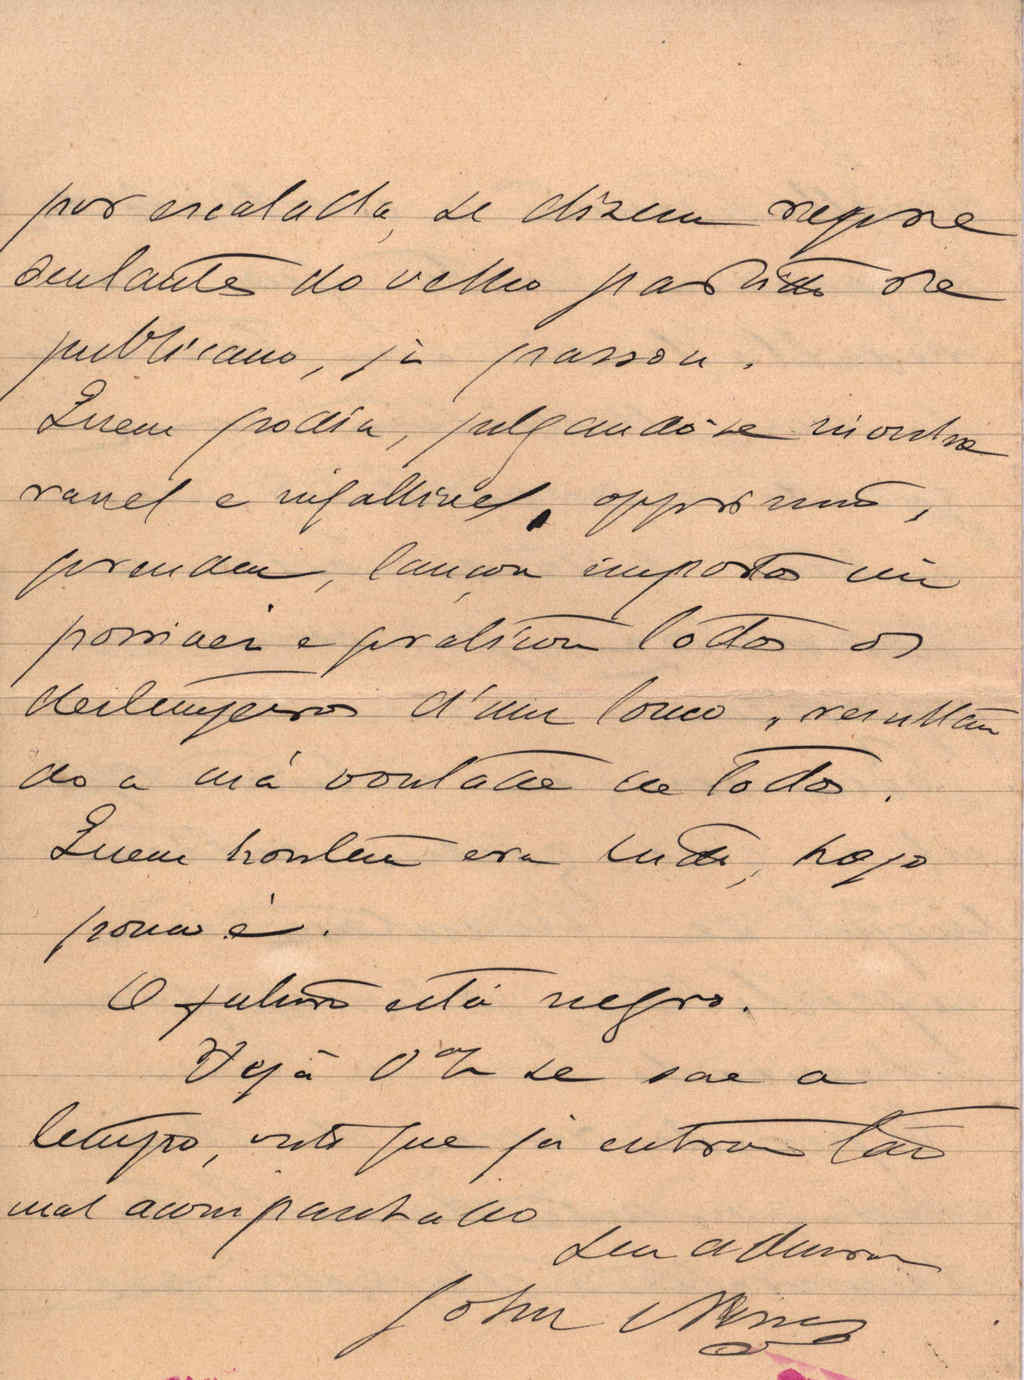 por escalada, se dizem repre
sentantes do velho partido re
publicano, já passou.
Quem podia, julgando-se incontra
ravel e infallivel, opprimio,
prendeu, lançou impostos im
possiveis e praticou todos os
destemperos d'um louco, resultan
do a má vontade de todos.
Quem hontem era tudo, hoje
pouco é.
O futuro está negro.
Veja V. Ex.ª se sae a
tempo, visto que já entrou tão
mal acompanhado
Seu admirador
John